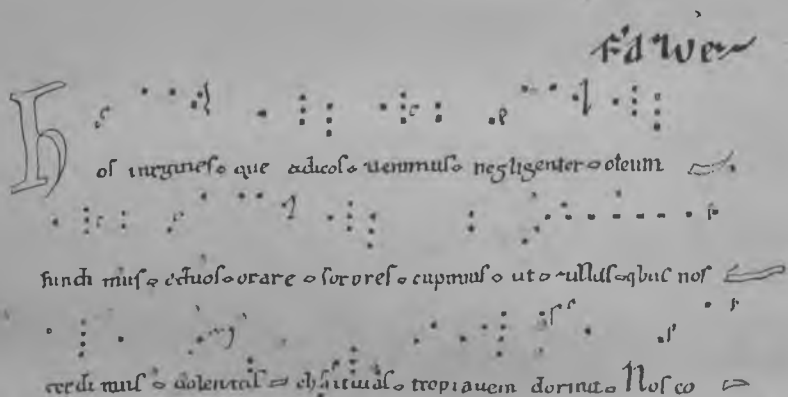 Hos uirgines que aduos uenimus negligenter oleum
fundi mus aduos orare sorores cupimus ut illas qbus nos
credi mus dolentas chaitiuas tropiauem dormit Nos co